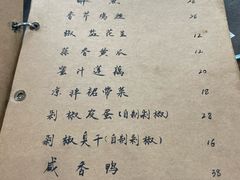 香芹鸡胗 26
椒盐花生 12
蒜香黄瓜 12
蜜汁莲藕 20
凉拌裙带菜 18
剁椒皮蛋(自制剁椒) 28
剁椒臭干(自制剁椒) 16
咸香鸭 38